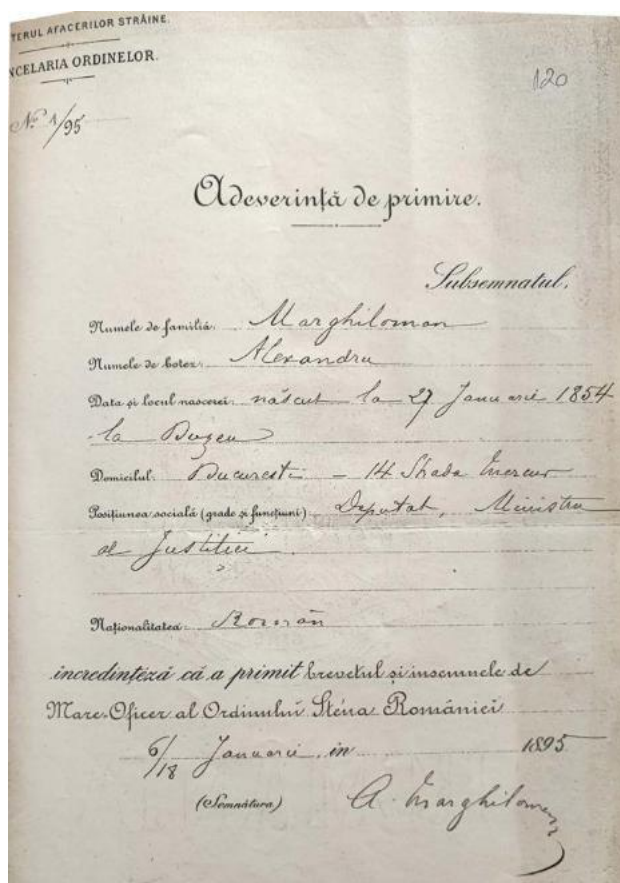 TERUL AFACERILOR STRĂINE.
NCELARIA ORDINELOR.
120
No. 1/95
Adeverință de primire.
Subsemnatul,
Numele de familiă: Marghiloman
Numele de botez: Alexandru
Data și locul nascerei: născut la 27 Januarie 1854
la Buzeu
Domicilul: Bucuresti - 14 Strada Mercur
Posițiunea socială (grade și funcțiuni) Deputat, Ministru
al Justiției.
Naționalitatea: Român
incredințeză că a primit brevetul și insemnele de
Mare-Oficer al Ordinului Steua României
6/18 Januarie, in 1895
(Semnătura) A. Marghiloman